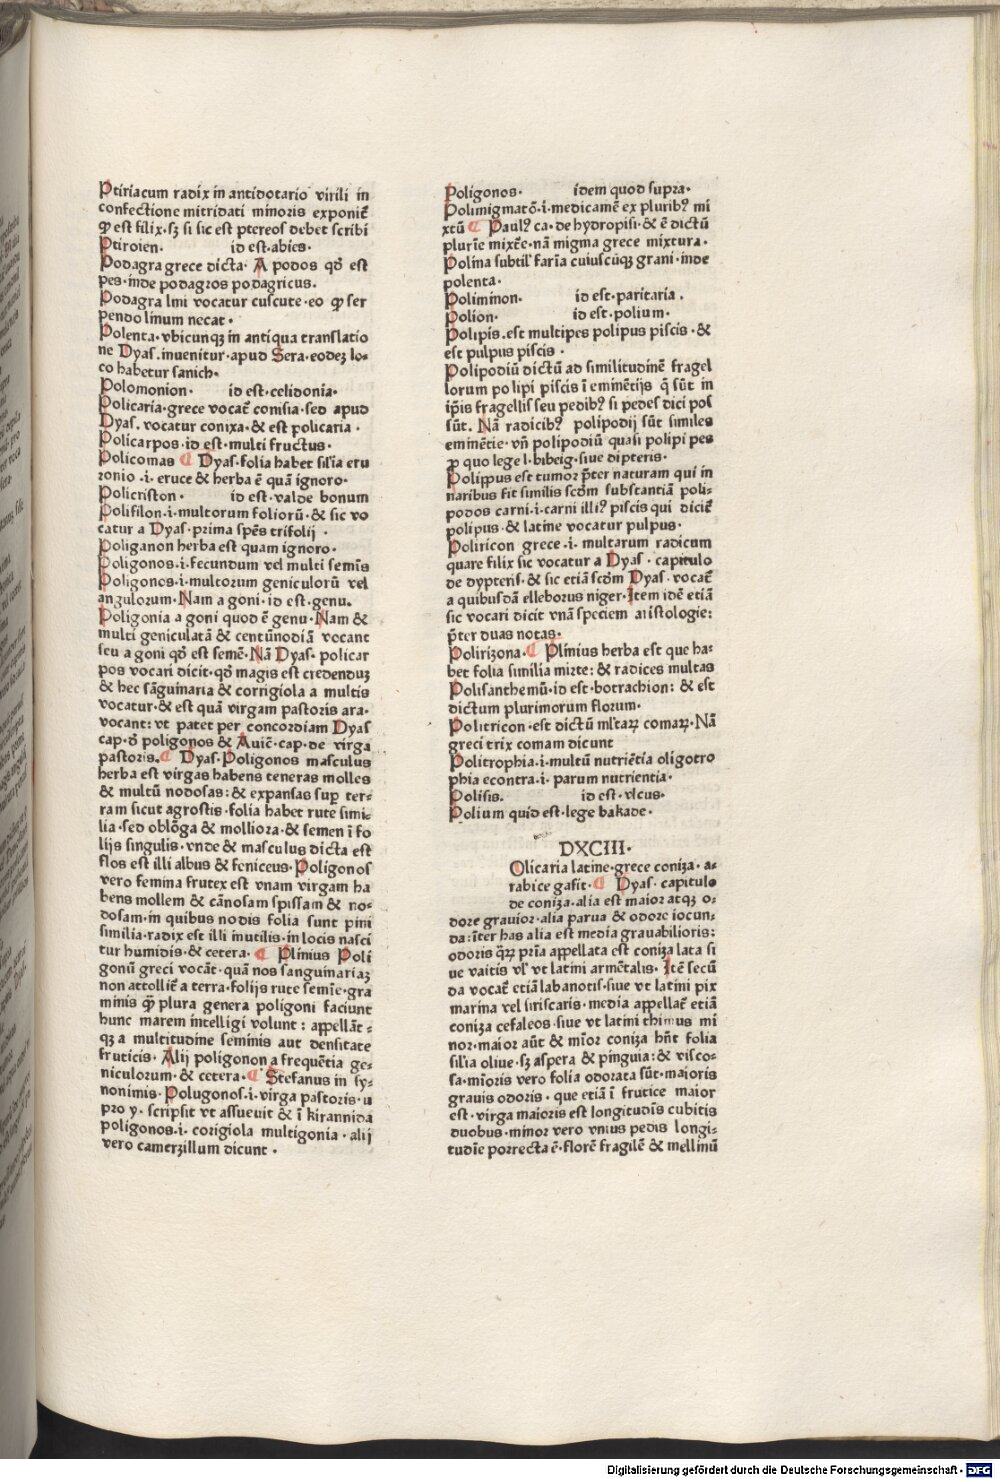 Ptiriacum radix in antidotario virili in
confectione mitridati minoris exponit̄
ꝙ est filix·sꝫ si sic est ptereos debet scribi
Ptiroien· id est·abies·
Podagra grece dicta· A podos qđ est
pes·inde podagros podagricus·
Podagra lini vocatur cuscute·eo ꝙ ser
pendo linum necat·
Polenta·vbicunqꝫ in antiqua translatio
ne Dyas·inuenitur·apud Sera·eodeꝫ lo⸗
co habetur sanich·
Polomonion· id est·celidonia·
Policaria·grece vocat̄ conisia·sed apud
Dyas· vocatur conixa·& est policaria·
Policarpos·id est·multi fructus·
Policomas ¶ Dyas·folia habet sil'ia eru
zonio·i·eruce & herba ē quā ignoro·
Policriston· id est·valde bonum
Polifilon·i·multorum foliorū·& sic vo
catur a Dyas·prima sp̄es trifolij·
Poliganon herba est quam ignoro·
Poligonos·i·fecundum vel multi semīs
Poligonos·i·multorum geniculorū vel
angulorum·Nam a goni·id est·genu·
Poligonia a goni quod ē genu·Nam &
multi geniculatā & centūnodiā vocant
seu a goni qđ est semē·Nā Dyas· policar
pos vocari dicit·qđ magis est credenduꝫ
& hec sāguinaria & corrigiola a multis
vocatur·& est quā virgam pastoris ara⸗
vocant: vt patet per concordiam Dyas
cap·đ poligonos & Auic̄·cap·de virga
pastoris·¶ Dyas·Poligonos masculus
herba est virgas habens teneras molles
& multū nodosas: & expansas suꝑ ter⸗
ram sicut agrostis·folia habet rute simi⸗
lia·sed oblōga & molliora·& semen ī fo
lijs singulis·vnde & masculus dicta est
flos est illi albus & feniceus·Poligonos
vero femina frutex est vnam virgam ha
bens mollem & cānosam spissam & no⸗
dosam·in quibus nodis folia sunt pini
similia·radix est illi inutilis·in locis nasci
tur humidis·& cetera·¶ Plinius Poli
gonū greci vocāt·quā nos sanguinariaꝫ
non attollit̄ a terra·folijs rute semīe·gra
minis ꝙ̄ plura genera poligoni faciunt
hunc marem intelligi volunt: appellāt⸗
qꝫ a multitudine seminis aut densitate
fruticis· Alij poligonon a frequētia ge⸗
niculorum·& cetera·¶ Stefanus in sy⸗
nonimis·Polugonos·i·virga pastoris·u
pro y· scripsit vt assueuit & ī kirannida
poligonos·i·corigiola multigonia·alij
vero camerzillum dicunt·
Poligonos· idem quod supra·
Polimigmatō·i·medicamē ex pluribꝰ mi
xtū ¶ Paulꝰ ca·de hydropisi·& ē dictū
plurie mixte·nā migma grece mixtura·
Polina subtil' faria cuiuscūqꝫ grani·inde
polenta·
Poliminon· id est·paritaria·
Polion· id est·polium·
Polipis·est multipes polipus piscis·&
est pulpus piscis·
Polipodiū dictū ad similitudinē fragel
lorum polipi piscis ī eminētijs q̄ sūt in
ip̄is fragellis seu pedibꝰ si pedes dici pos
sūt· Nā radicibꝰ polipodij sūt similes
eminētie·vn̄ polipodiū quasi polipi pes
ꝓ quo lege l·bibeig·siue dipteris·
Polippus est tumor p̄ter naturam qui in
naribus fit similis scđm substantiā poli⸗
podos carni·i·carni illiꝰ piscis qui dicit̄
polipus·& latine vocatur pulpus·
Poliricon grece·i·multarum radicum
quare filix sic vocatur a Dyas· capitulo
de dypteris·& sic etiā scđm Dyas·vocat̄
a quibusdā elleborus niger·Item idē etiā
sic vocari dicit vnā speciem aristologie:
p̄ter duas notas·
Polirizona·¶ Plinius herba est que ha⸗
bet folia similia mirte: & radices multas
Polisanthemū·id est·botrachion: & est
dictum plurimorum florum·
Politricon·est dictū ml'taꝝ comaꝝ·Nā
greci trix comam dicunt
Politrophia·i·multū nutriētia oligotro
phia econtra·i·parum nutrientia·
Polisis· id est·vlcus·
Polium quid est·lege bakade·
DXCIII·
Olicaria latine·grece coniza·a⸗
rabice gafit·¶ Dyas·capitulo
de coniza·alia est maior atqꝫ o⸗
dore grauior·alia parua & odore iocun⸗
da:īter has alia est media grauabilioris:
odoris q̄ꝝ pria appellata est coniza lata si
ue vaitis vl' vt latini armētalis· Itē secū
da vocat̄ etiā labanotis·siue vt latini pix
marina vel siriscaris·media appellat̄ etiā
coniza cefaleos·siue vt latini thimus mi
nor·maior aūt & mīor coniza hn̄t folia
sil'ia oliue·sꝫ aspera & pinguia: & visco⸗
sa·mīoris vero folia odorata sūt·maioris
grauis odoris· que etiā ī frutice maior
est·virga maioris est longitudīs cubitis
duobus·minor vero vnius pedis longi⸗
tudīe porrecta ē·florē fragilē & mellinū
Digitalisierung gefördert durch die Deutsche Forschungsgemeinschaft - DFG